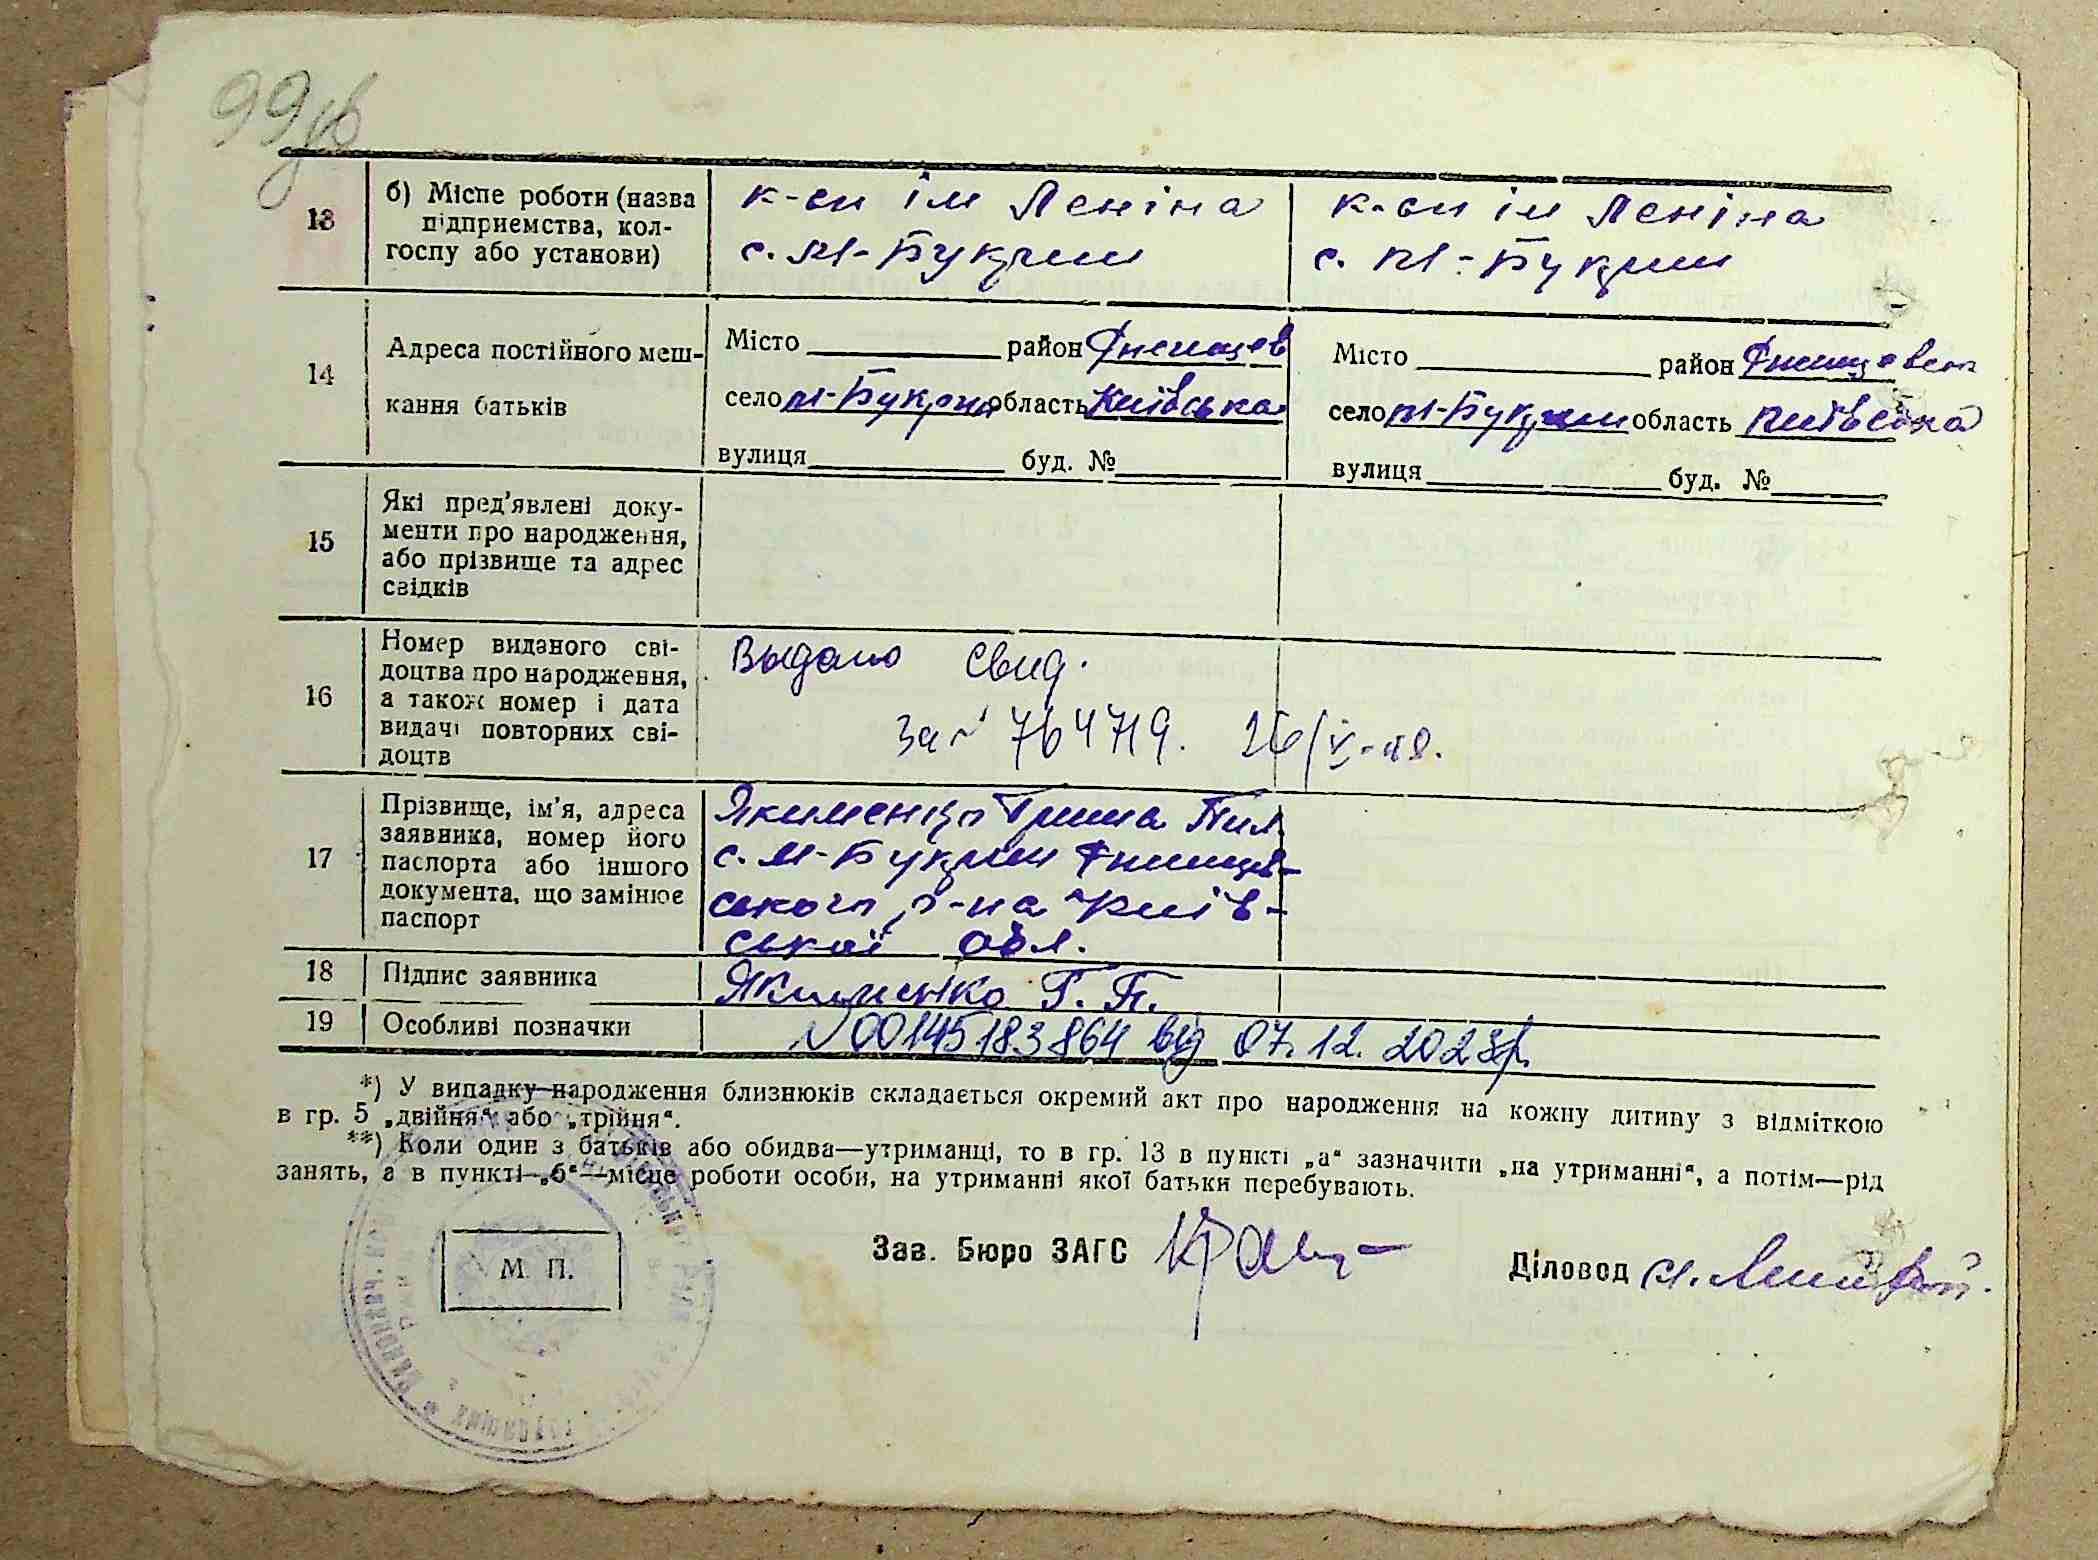 99
13
б) Місце роботи (назва
підприємства, кол-
госпу або установи)
к-сп ім Леніна
с. М-Букрин
к-сп ім Леніна
с. М-Букрин
14
Адреса постійного меш-
кання батьків
Місто район
село М-Букрин область Київська
вулиця буд. №
Місто район
село М-Букрин область Київська
вулиця буд. №
15
Які пред'явлені доку-
менти про народження,
або прізвище та адрес
свідків
16
Номер виданого сві-
доцтва про народження,
а також номер і дата
видачі повторних сві-
доцтв
Выдано свид.
за № 764719. 26/V-48.
17
Прізвище, ім'я, адреса
заявника, номер його
паспорта або іншого
документа, що замінює
паспорт
Якименко Гриша Пил
с. М-Букрин
ського р-на Київ-
ської обл.
18
Підпис заявника
Якименко Г. П.
19
Особливі позначки
№00145183864 від 07.12.2023р.
*) У випадку народження близнюків складається окремий акт про народження на кожну дитину з відміткою
в гр. 5 „двійня“ або „трійня“.
**) Коли один з батьків або обидва—утриманці, то в гр. 13 в пункті „а“ зазначити „на утриманні“, а потім—рід
занять, а в пункті „б“—місце роботи особи, на утриманні якої батьки перебувають.
М. П.
Зав. Бюро ЗАГС
Діловод